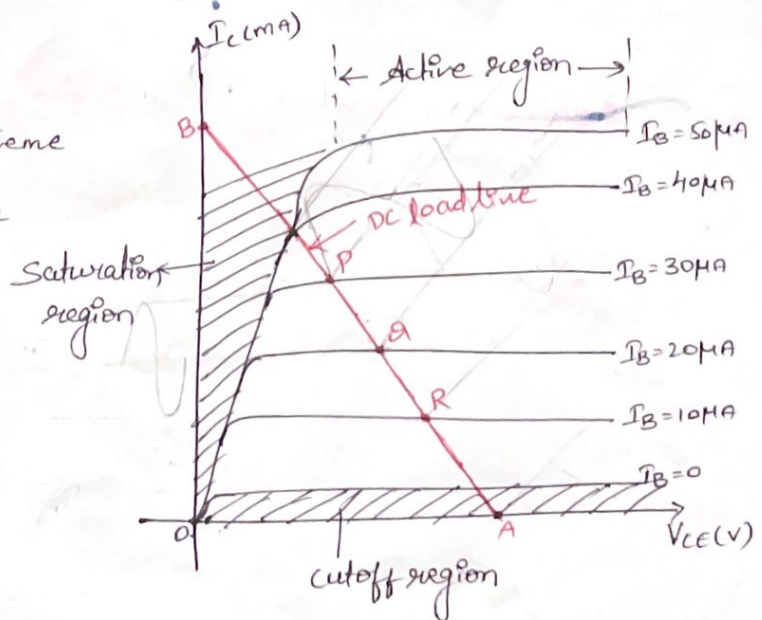 I_C(mA)
← Active region →
B
eme
I_B = 50μA
I_B = 40μA
DC load line
Saturation
region
P
I_B = 30μA
Q
I_B = 20μA
R
I_B = 10μA
I_B = 0
O
A
V_CE(V)
cutoff region